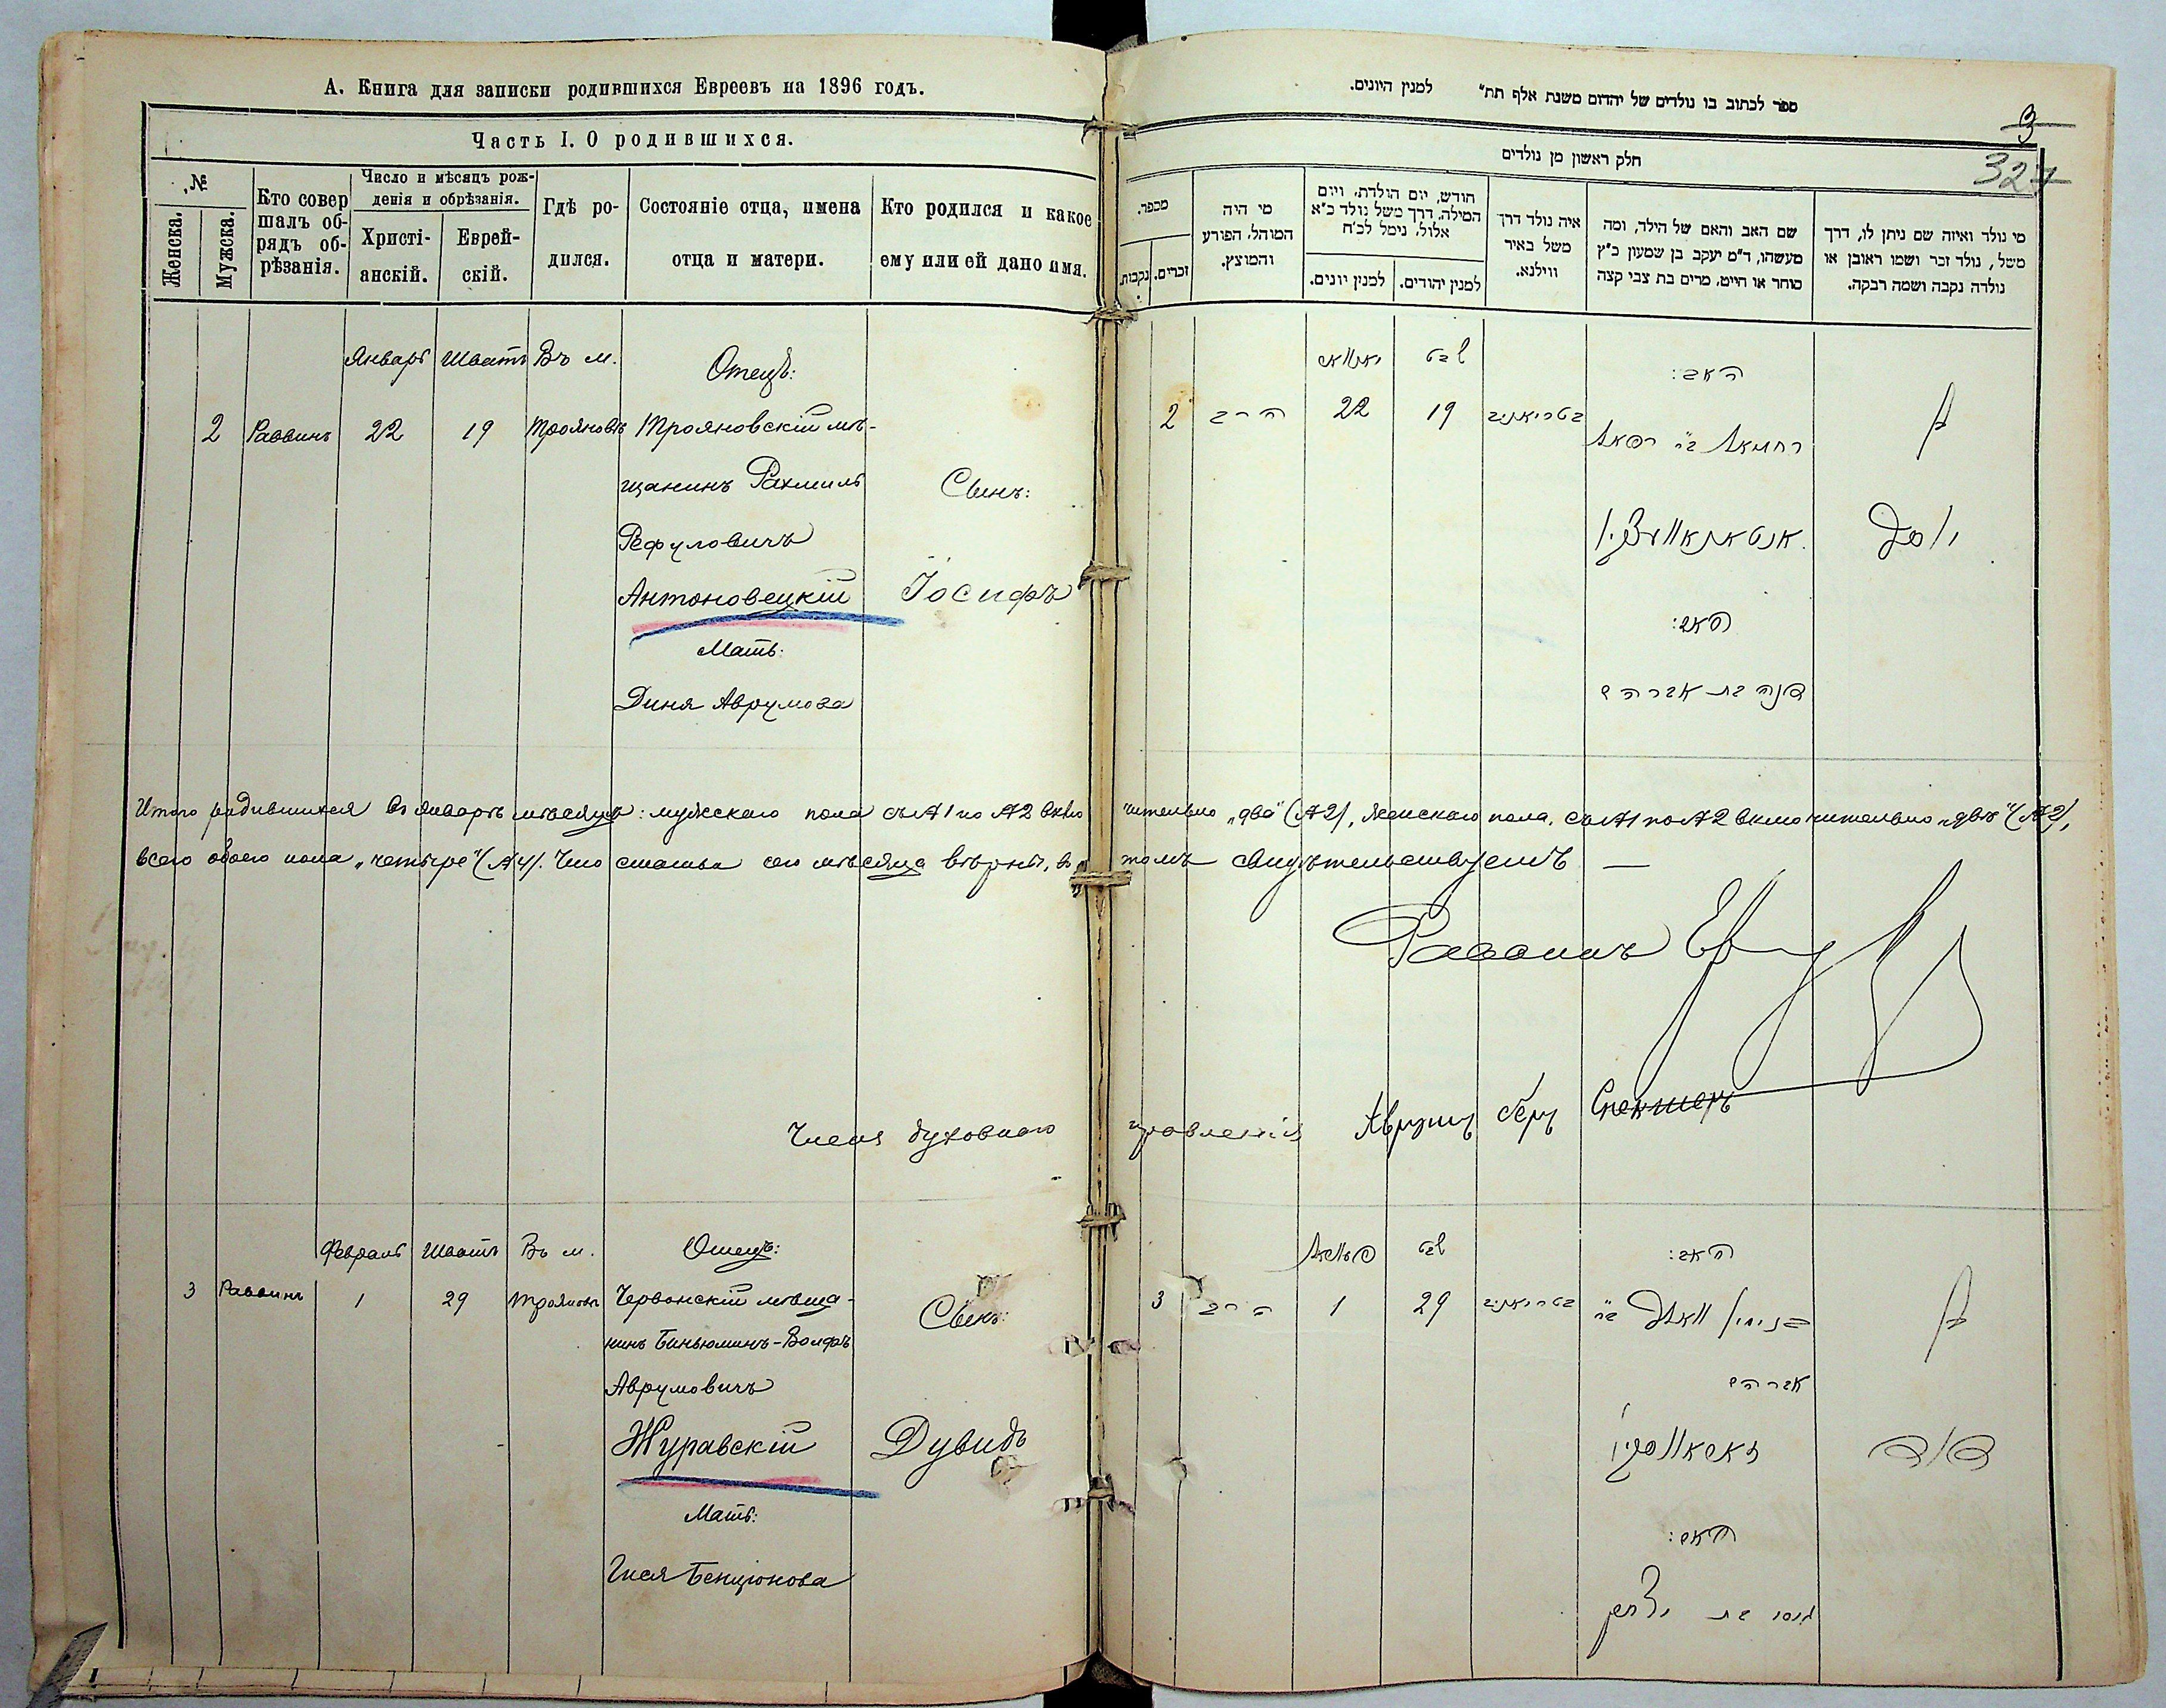 А. Книга для записки родившихся Евреевъ на 1896 годъ.
Часть I. О родившихся.
№
Женска.
Мужска.
Кто совершалъ обрядъ обрѣзанія.
Число и мѣсяцъ рожденія и обрѣзанія.
Христіанскій.
Еврейскій.
Гдѣ родился.
Состояніе отца, имена отца и матери.
Кто родился и какое ему или ей дано имя.
Январь Шватъ Въ м. Отецъ:
2 Раввинъ 22 19 Трояновѣ Трояновскій мѣ-
щанинъ Рахмиль Сынъ:
Рефуловичъ
Антоновецкій Іосифъ
Мать:
Диня Аврумова
Итого родившихся въ Январѣ мѣсяцѣ: мужскаго пола съ №1 по №2 вклю
всего обоего пола „четыре" (№4). Что статьи сего мѣсяца вѣрны, въ
Члены духовнаго
Февраль Шватъ Въ м. Отецъ:
3 Раввинъ 1 29 Трояновѣ Червонскій мѣща-
нинъ Биньюминъ-Волфъ Сынъ:
Аврумовичъ
Журавскій Дувидъ
Мать:
Гися Бенціонова
ספר לכתוב בו נולדים של יהדום משנת אלף תת" למנין היונים.
3
327
חלק ראשון מן נולדים
מספר.
נקבות
זכרים.
מי היה המוהל, הפורע והמוצץ.
חודש, יום הולדת, ויום המילה, דרך משל נולד כ"א אלול, נימל לכ"ח
למנין יונים.
למנין יהודים.
איה נולד דרך משל באיר ווילנא.
שם האב והאם של הילד, ומה מעשהו, ד"מ יעקב בן שמעון כ"ץ סוחר או חייט, מרים בת צבי קצה
מי נולד ואיזה שם ניתן לו, דרך משל, נולד זכר ושמו ראובן או נולדה נקבה ושמה רבקה.
יאנואר שבט האב:
2 הרב 22 19 בטריאניב רחמאל ב"ר רפאל בן
אנטאנאוועצקי יוסף
האם:
דינה בת אברהם
чительно „два" (№2), женскаго пола, съ №1 по №2 включительно „двѣ" (№2),
томъ свидѣтельствуемъ —
Раввинъ
правленія Аврумъ Беръ Спекторъ
שבט האב:
3 הרב 1 29 בטריאניב בנימין וואלף ב"ר בן
אברהם
דוד
האם: